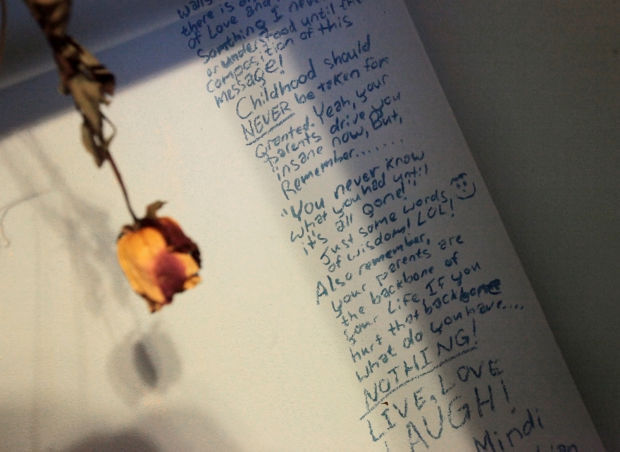 there is
of Love and
Something I never
or understood until the
composition of this
message!
Childhood should
NEVER be taken for
Granted. Yeah, your
parents drive you
insane now, But,
Remember.......
"You never know
what you had until
it's all gone!"
Just some words
of wisdom! LOL!
Also remember,
your parents are
the backbone of
your life. If you
hurt that backbone
what do you have....
NOTHING!
LIVE, LOVE
LAUGH!
Mindi